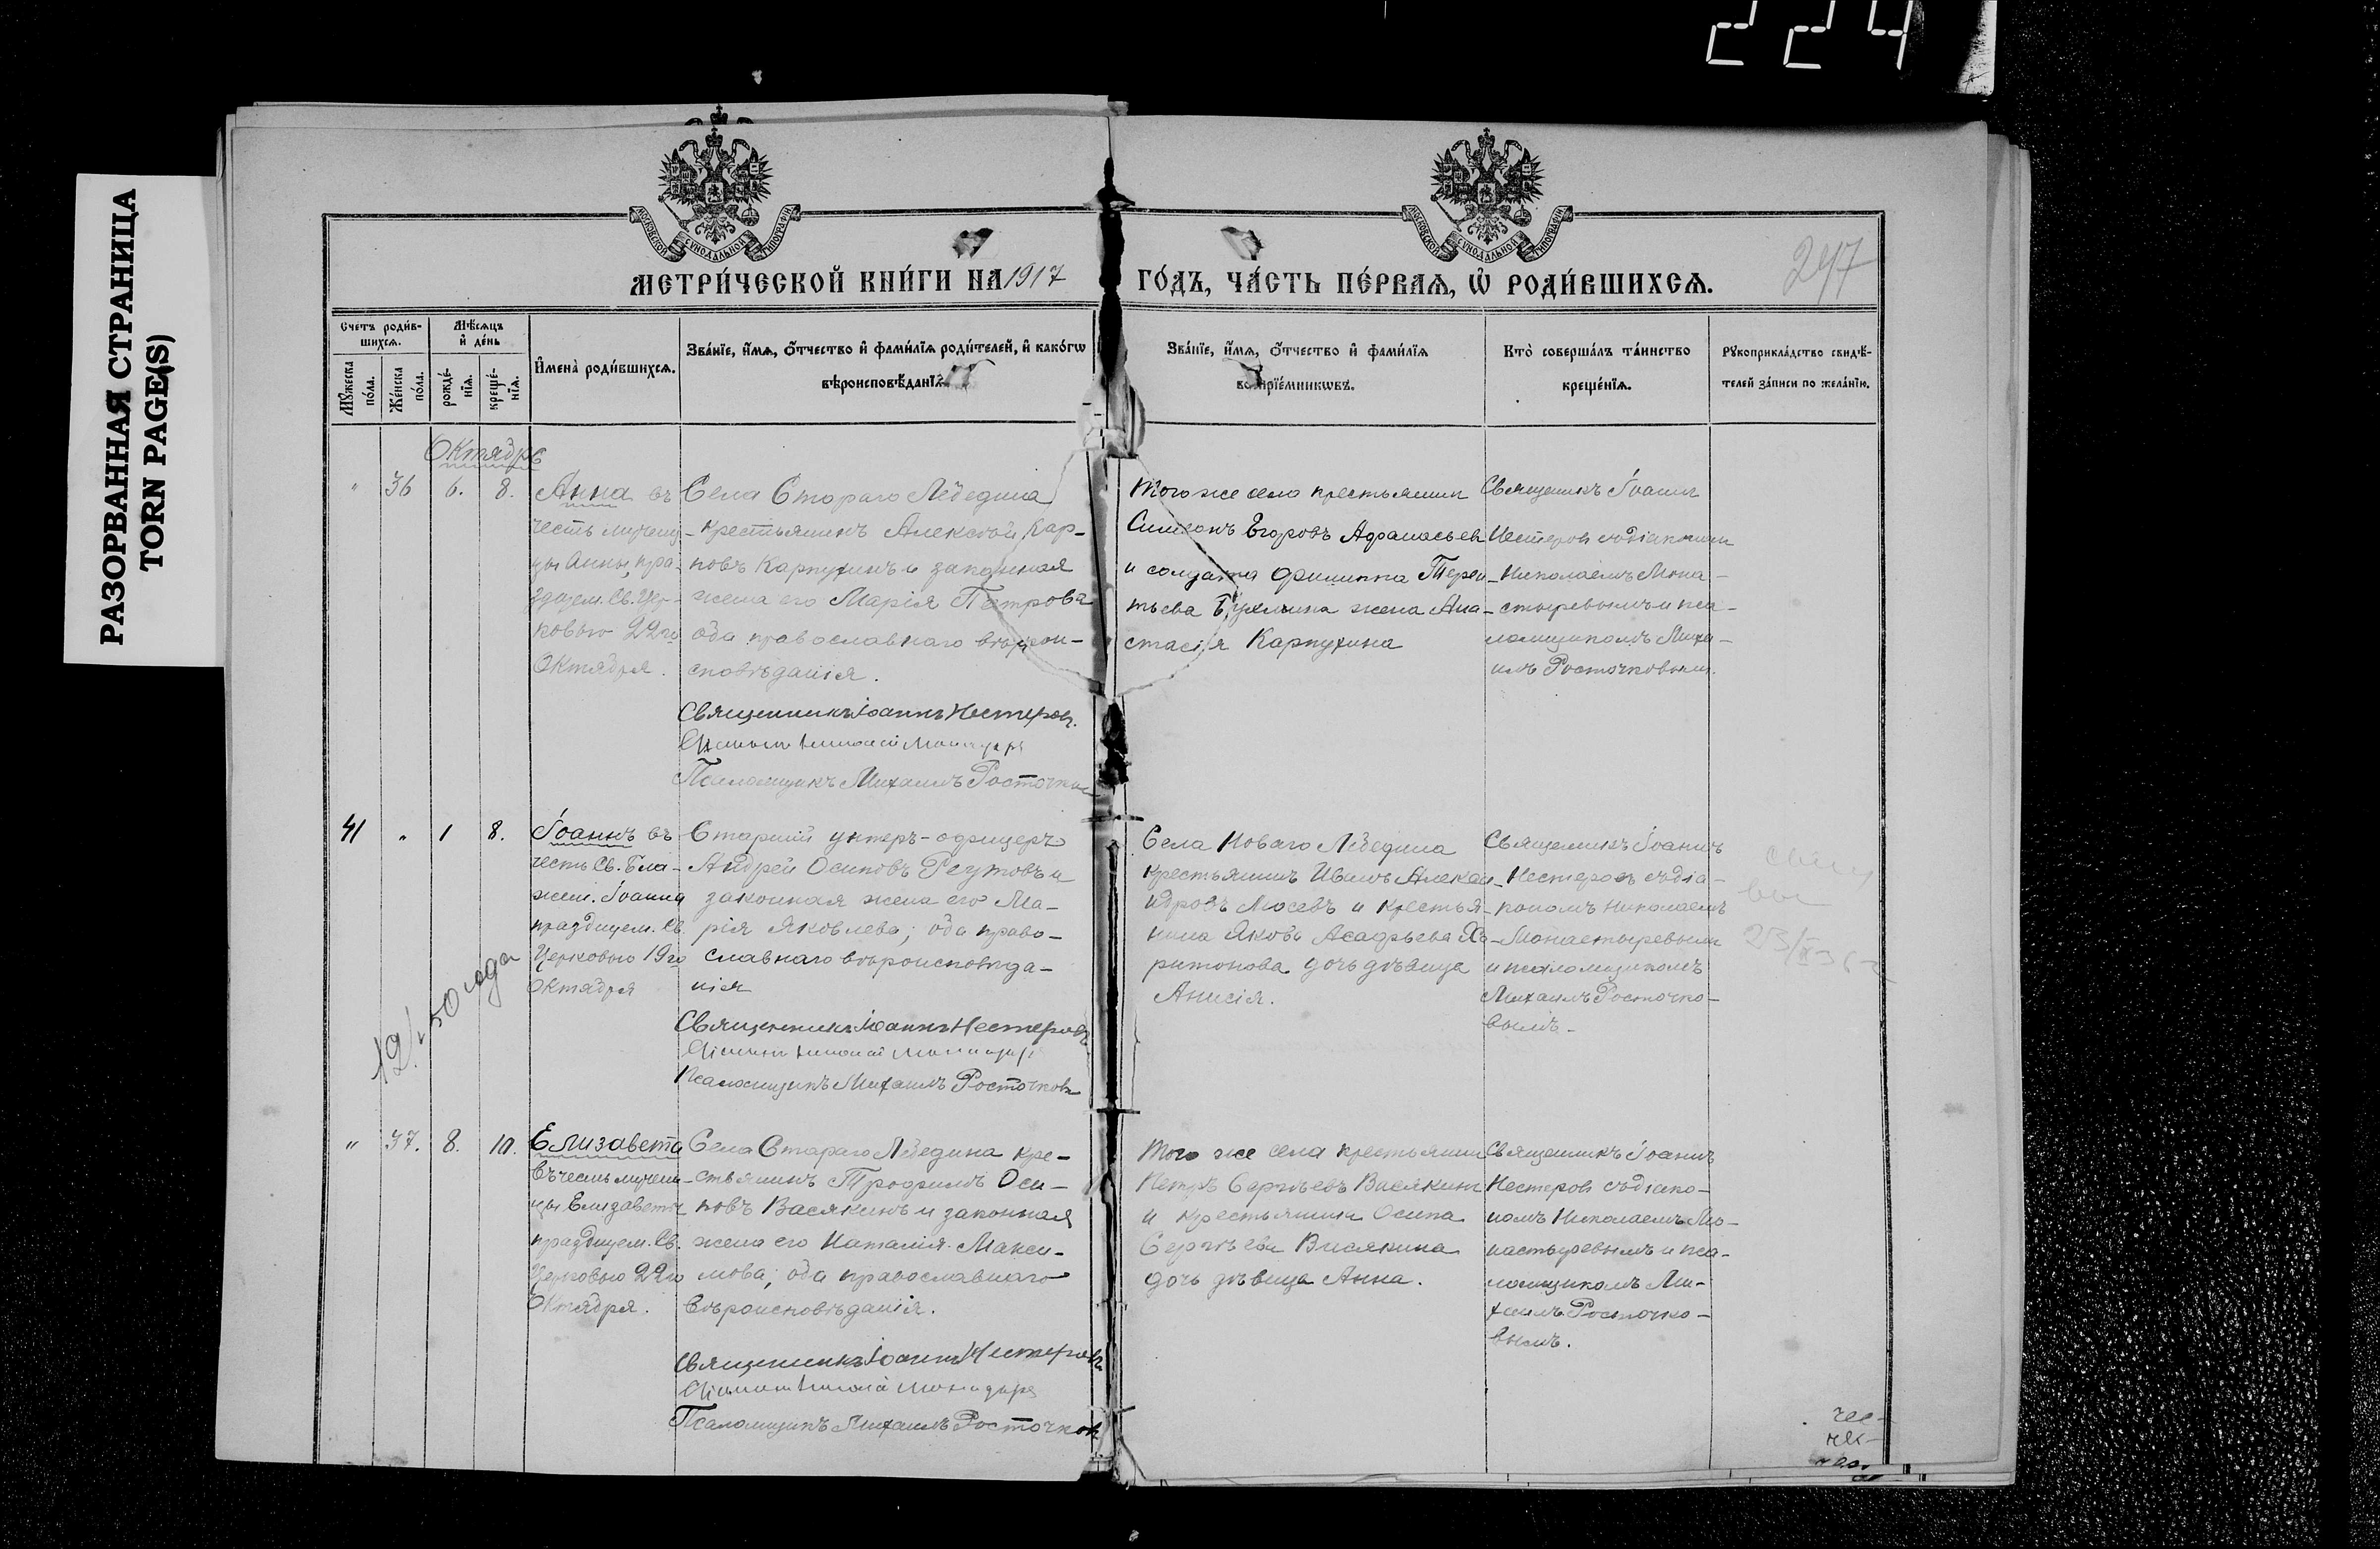 224
РАЗОРВАННАЯ СТРАНИЦА
TORN PAGE(S)
МОСКОВСКОЙ СѴНОДАЛЬНОЙ ТИПОГРАФІИ
МОСКОВСКОЙ СѴНОДАЛЬНОЙ ТИПОГРАФІИ
МЕТРИ́ЧЕСКОЙ КНИ́ГИ НА 1917 ГО́ДЪ, ЧА́СТЬ ПЕ́РВАѦ, Ѽ РОДИ́ВШИХСѦ.
247
Счетъ роди́в-
шихсѧ.
Мѣсѧцъ
и҆ де́нь
Мꙋ́жеска
по́ла.
Же́нска
по́ла.
рожде́-
нїѧ.
креще́-
нїѧ.
И҆мена̀ роди́вшихсѧ.
Зва́нїе, и҆́мѧ, ѻ҆́тчество и҆ фами́лїѧ роди́телей, и҆ како́гѡ
вѣроисповѣ́данїѧ.
Зва́нїе, и҆́мѧ, ѻ҆́тчество и҆ фами́лїѧ
воспрїе́мникѡвъ.
Кто̀ соверша́лъ та́инство
креще́нїѧ.
Рꙋкоприкла́дство свидѣ́-
телей за́писи по жела́нїю.
Октябрь
" 36 6. 8.
Анна въ
честь мучени-
цы Анны, пра-
зднуем. Св. Цер-
ковью 22го
Октября.
Села Стараго Лебедина
крестьянинъ Алексѣй Кар-
повъ Карпухинъ и законная
жена его Марія Петрова
оба православнаго вѣрои-
сповѣданія.
Священникъ Іоаннъ Нестеровъ.
Псаломщикъ Михаилъ Росточков
Того же села крестьянин
Симеонъ Егоровъ Афанасьев
и солдата Филиппа Терен-
тьева жена Ана-
стасія Карпухина
Священникъ Іоаннъ
Нестеровъ съ діаконом
Николаемъ Мона-
стыревымъ и пса-
ломщикомъ Миха-
иломъ Росточковым.
41 " 1 8.
Іоаннъ въ
честь Св. Бла-
жен. Іоанна
празднуем. Св.
Церковью 19го
Октября
Старшій унтеръ-офицеръ
Андрей Осиповъ Реутовъ и
законная жена его Ма-
рія Яковлева; оба право-
славнаго вѣроисповѣда-
нія
Священникъ Іоаннъ Нестеровъ
Псаломщикъ Михаилъ Росточковъ
Села Новаго Лебедина
крестьянинъ Иванъ Алекса-
ндровъ Мосевъ и крестья-
нина Якова Асафьева Ха-
ритонова дочь дѣвица
Анисія.
Священникъ Іоаннъ
Нестеровъ съ діа-
кономъ Николаемъ
Монастыревымъ
и псаломщикомъ
Михаилъ Росточко-
вымъ.
" 37. 8. 10.
Елизавета
въ честь мучени-
цы Елизаветы
празднуем. Св.
Церковью 22го
Октября.
Села Стараго Лебедина кре-
стьянинъ Трофимъ Оси-
повъ Васякинъ и законная
жена его Наталія Макси-
мова; оба православнаго
вѣроисповѣданія.
Священникъ Іоаннъ Нестеровъ
Псаломщикъ Михаилъ Росточков
Того же села крестьянин
Петръ Сергѣевъ Васякинъ
и крестьянина Осипа
Сергѣева Васякина
дочь дѣвица Анна.
Священникъ Іоаннъ
Нестеровъ съ діако-
номъ Николаемъ Мо-
настыревымъ и пса-
ломщикомъ Ми-
хаилъ Росточко-
вымъ.